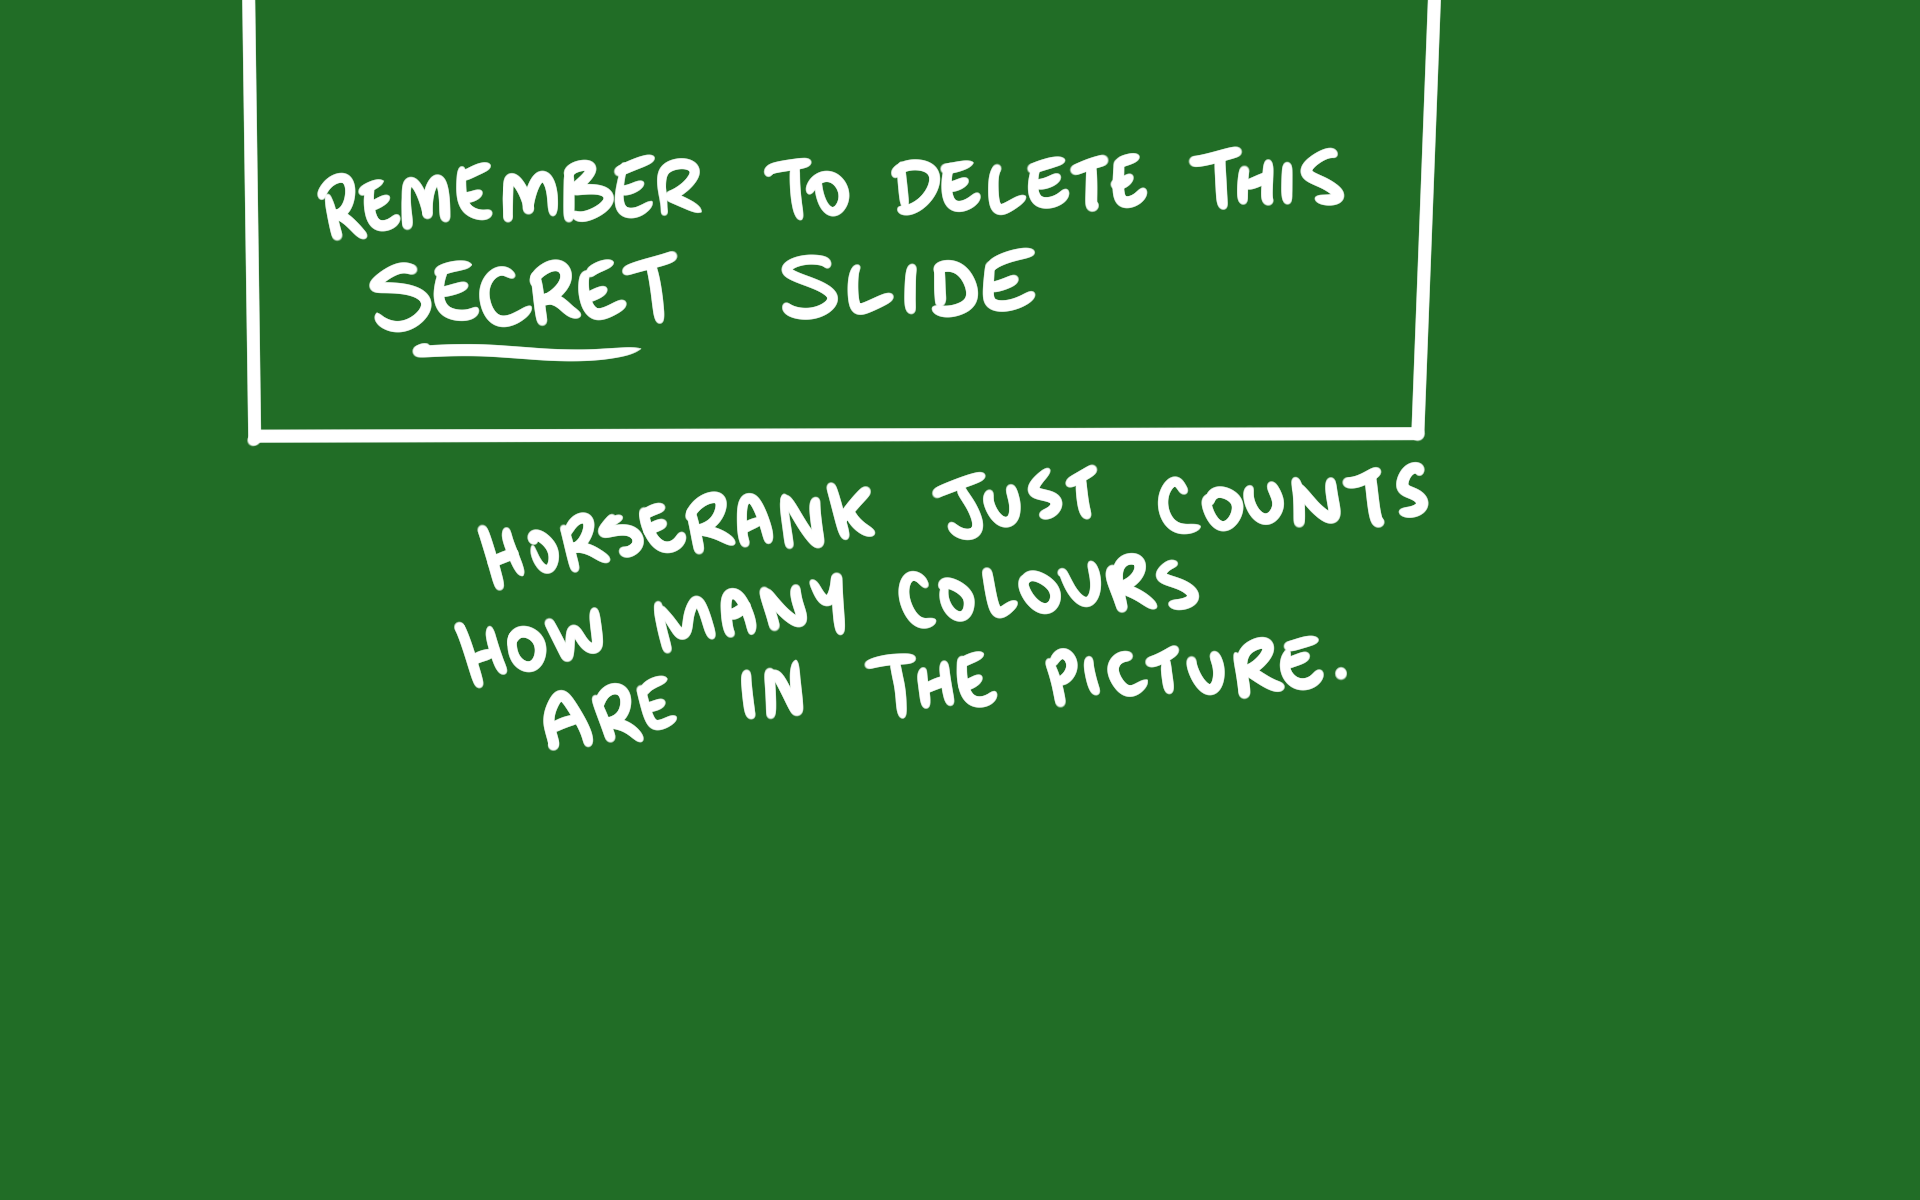 REMEMBER TO DELETE THIS
SECRET SLIDE
HORSERANK JUST COUNTS
HOW MANY COLOURS
ARE IN THE PICTURE.